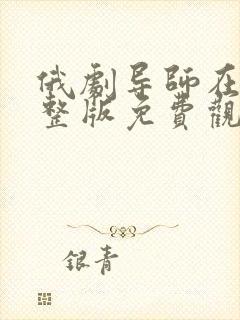 俄劇导師在
整版免費觀
銀青